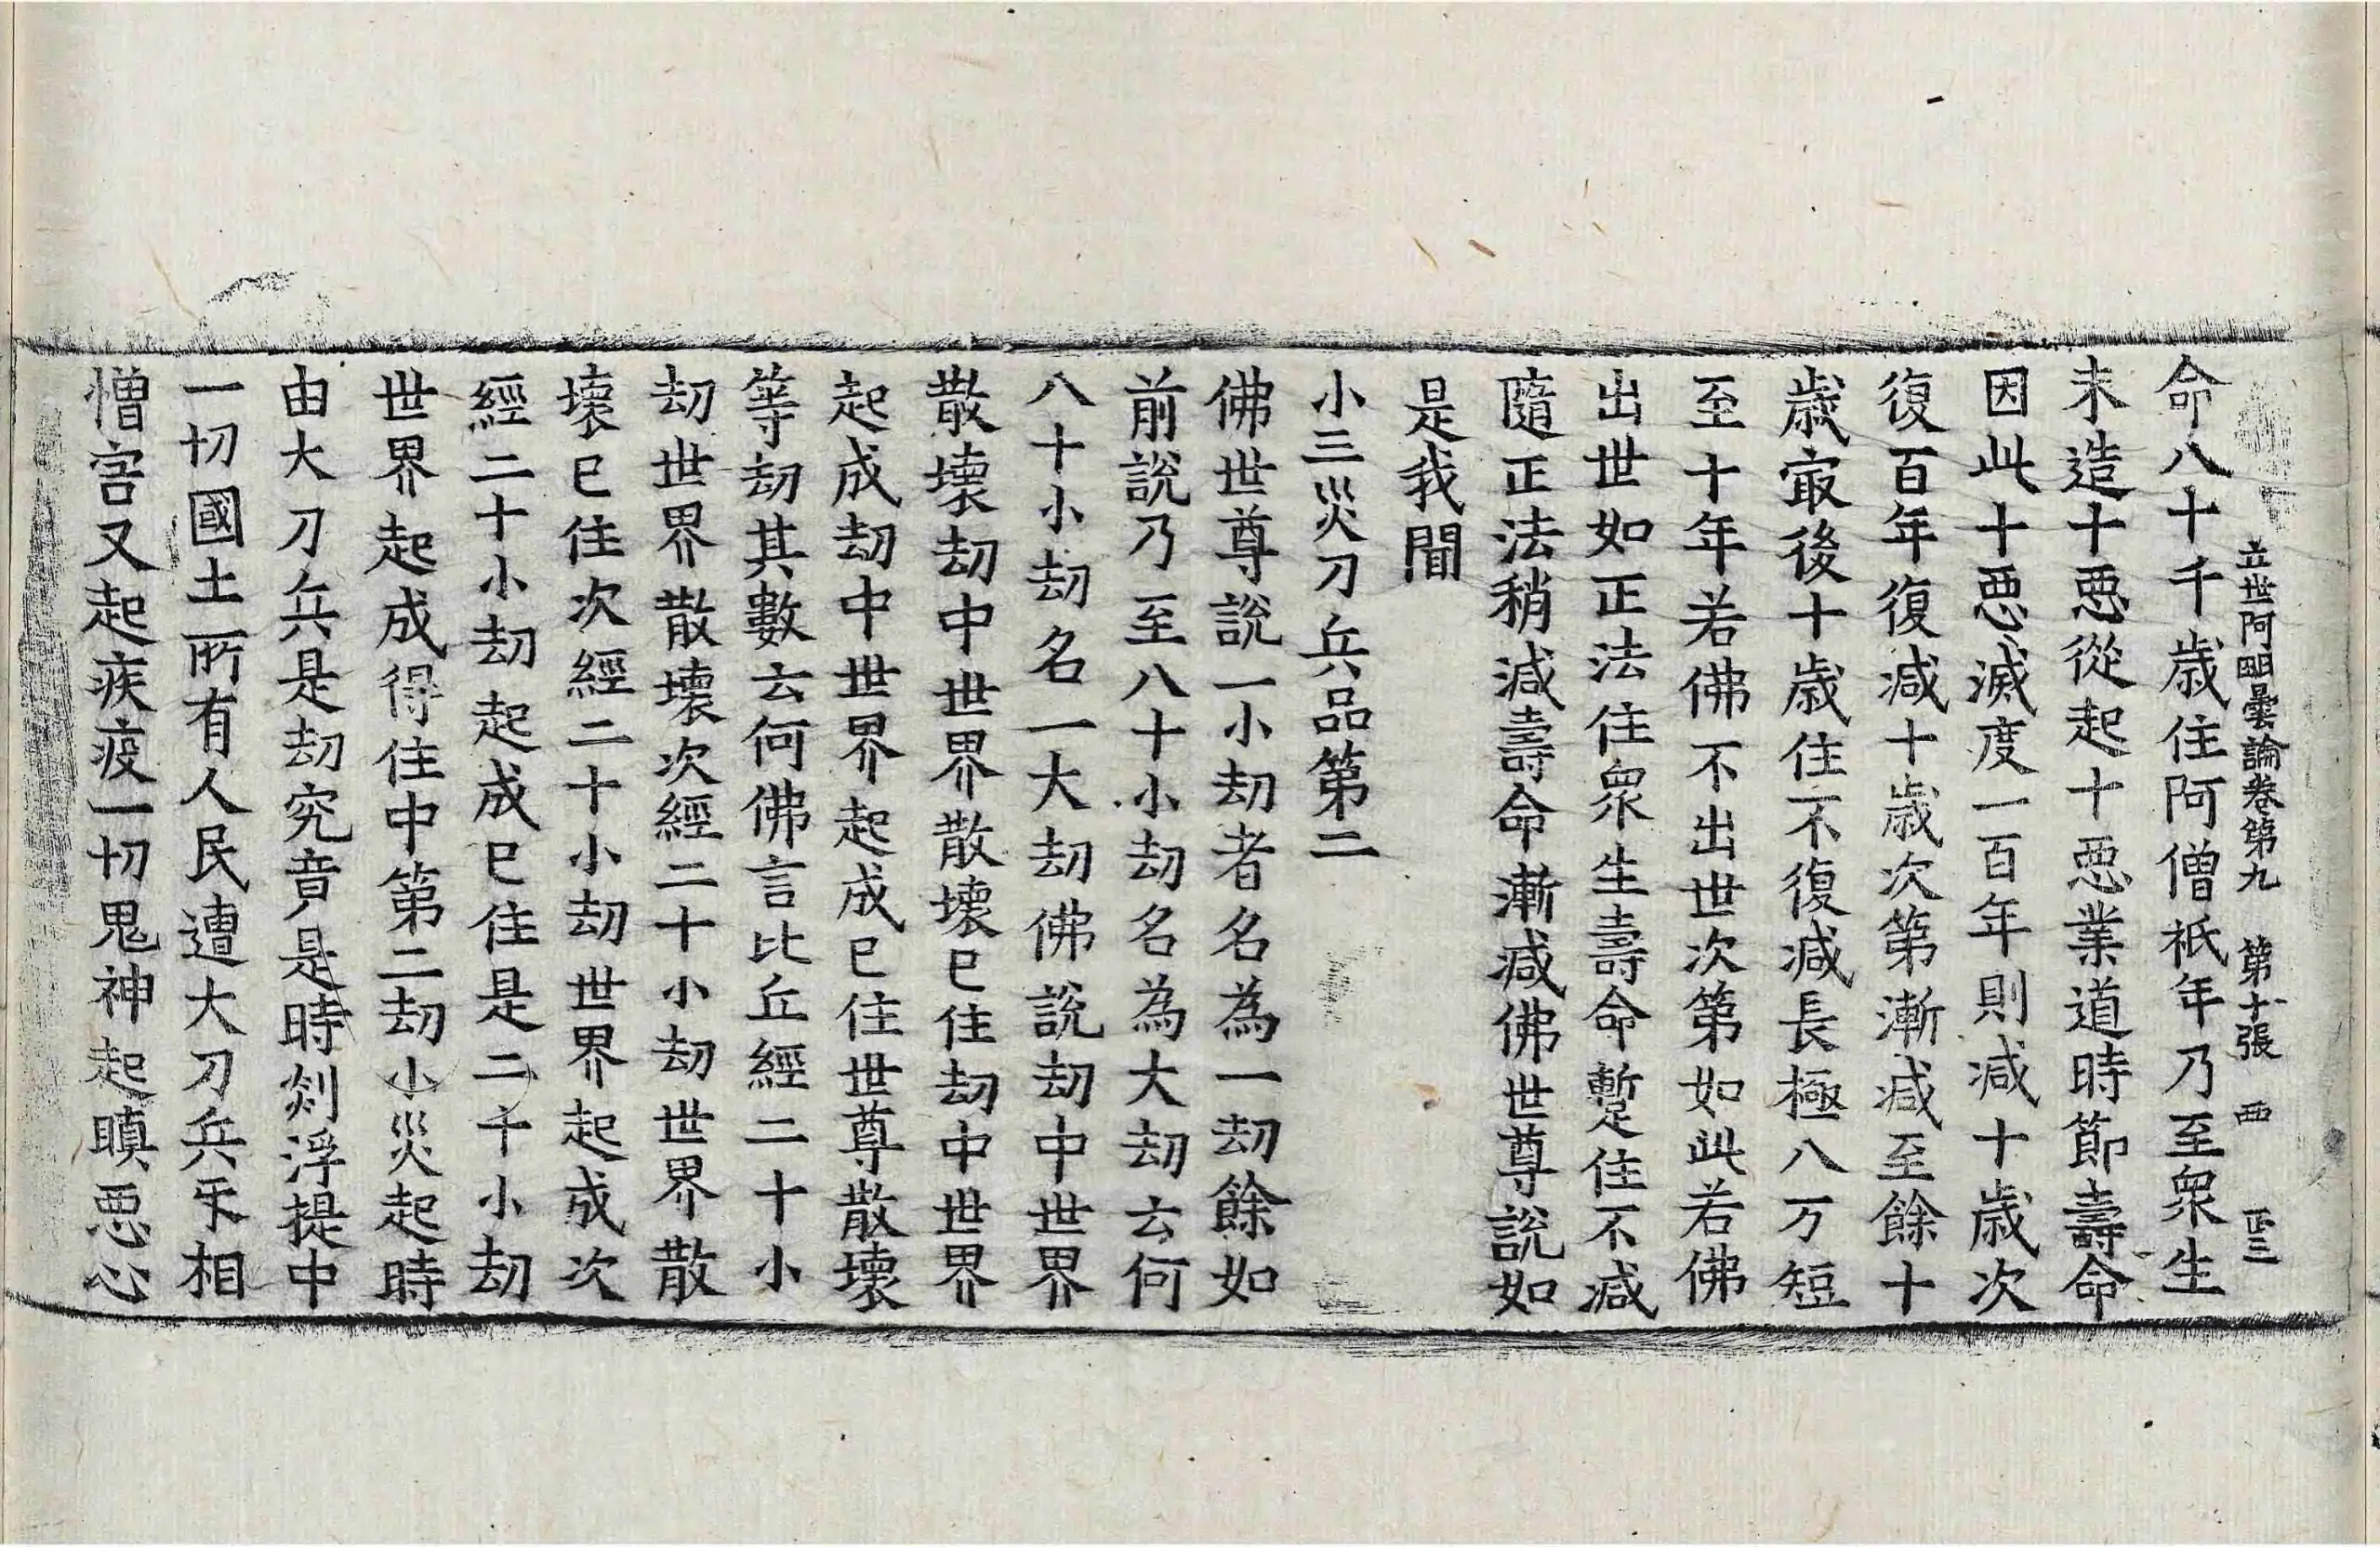 立世阿毗曇論卷第九　第十張　西
命八十千歲住阿僧祇年乃至衆生
未造十惡從起十惡業道時節壽命
因此十惡滅度一百年則減十歲次
復百年復減十歲次第漸減至餘十
歲㝡後十歲住不復減長極八万短
至十年若佛不出世次第如此若佛
出世如正法住衆生壽命暫住不減
隨正法稍減壽命漸減佛世尊說如
是我聞
小三災刀兵品第二
佛世尊說一小劫者名為一劫餘如
前說乃至八十小劫名為大劫云何
八十小劫名一大劫佛說劫中世界
散壞劫中世界散壞已住劫中世界
起成劫中世界起成已住世尊散壞
等劫其數云何佛言比丘經二十小
劫世界散壞次經二十小劫世界散
壞已住次經二十小劫世界起成次
經二十小劫起成已住是二千小劫
世界起成得住中第二劫小災起時
由大刀兵是劫究竟是時剡浮提中
一切國土所有人民遭大刀兵㸦相
憎害又起疾疫一切鬼神起瞋惡心